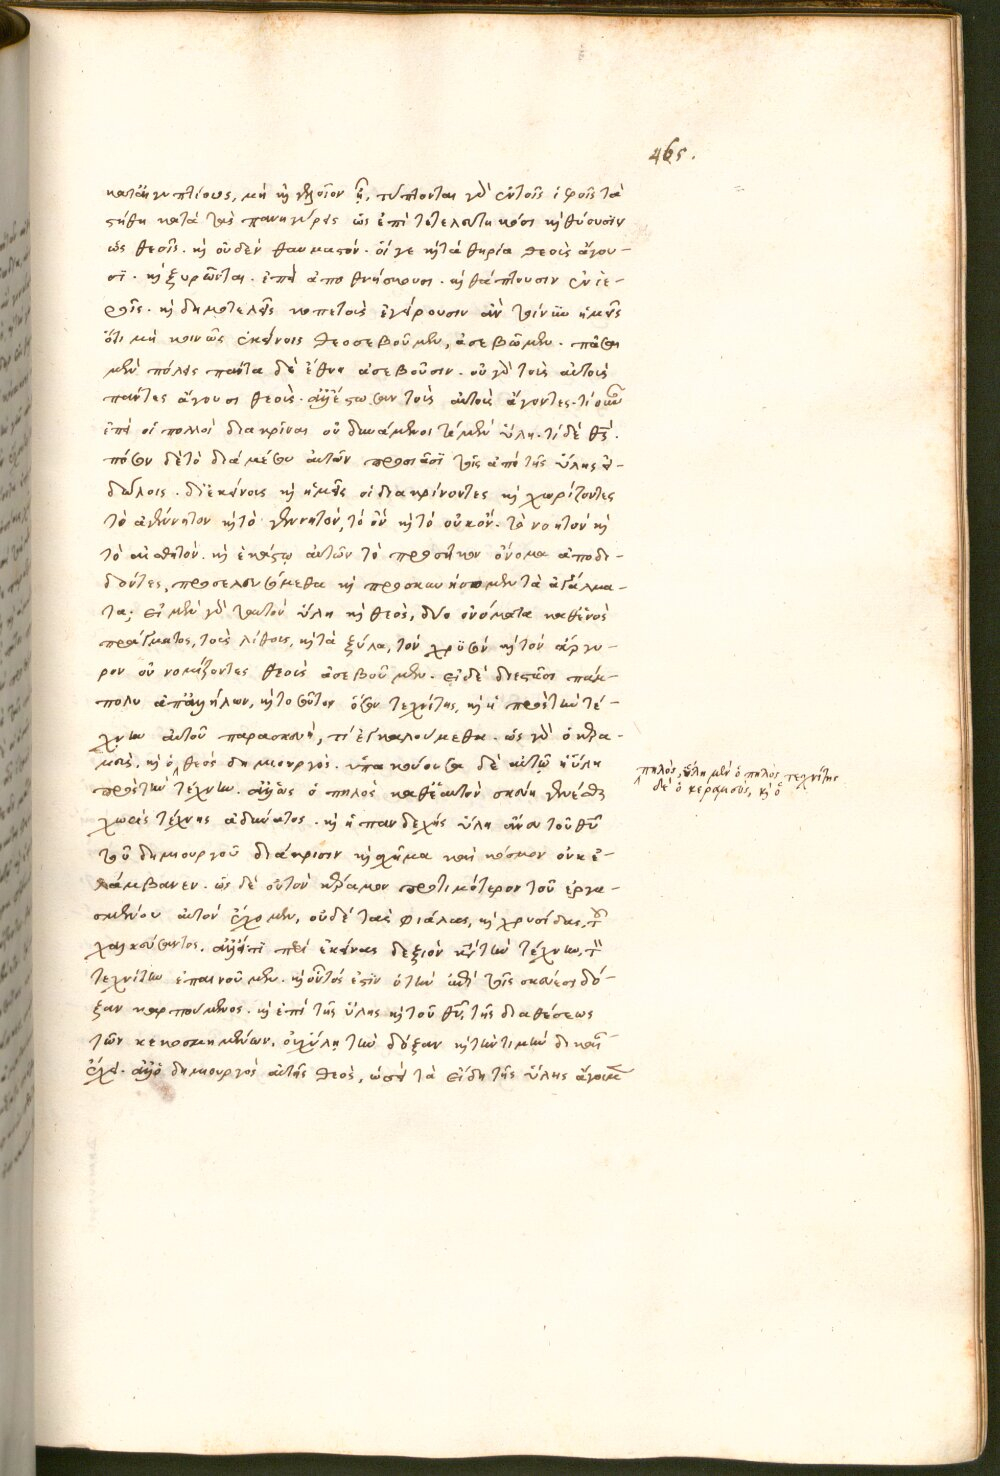 465.
κατ' αἰγυπτίους, μὴ καὶ γελοῖον ᾖ, τύπτονται γὰρ ἐν τοῖς ἱεροῖς τὰ
στήθη κατὰ τὰς πανηγύρεις ὡς ἐπὶ τετελευτηκόσι καὶ θύουσιν
ὡς θεοῖς. καὶ οὐδὲν θαυμαστόν. οἵ γε καὶ τὰ θηρία θεοὺς ἄγου-
σι. καὶ ξυρῶνται. ἐπὰν ἀποθνήσκουσι. καὶ θάπτουσιν ἐν ἱε-
ροῖς. καὶ δημοτελεῖς κοπετοὺς ἐγείρουσιν ἂν τοίνυν ἡμεῖς
ὅτι μὴ κοινῶς ἐκείνοις θεοσεβοῦμεν, ἀσεβῶμεν. πᾶσαι
μὲν πόλεις πάντα δὲ ἔθνη ἀσεβοῦσιν. οὐ γὰρ τοὺς αὐτοὺς
πάντες ἄγουσι θεούς. ἀλλ' ἔστωσαν τοὺς αὐτοὺς ἄγοντες. τί οὖν
ἐπεὶ οἱ πολλοὶ διακρῖναι οὐ δυνάμενοι τί μὲν ὕλη. τί δὲ θεός.
πόσον δὲ τὸ διὰ μέσου αὐτῶν προσίασι τοῖς ἀπὸ τῆς ὕλης εἰ-
δώλοις. δι' ἐκείνους καὶ ἡμεῖς οἱ διακρίνοντες καὶ χωρίζοντες
τὸ ἀγέννητον καὶ τὸ γεννητόν, τὸ ὂν καὶ τὸ οὐκ ὄν. τὸ νοητὸν καὶ
τὸ αἰσθητόν. καὶ ἑκάστῳ αὐτῶν τὸ προσῆκον ὄνομα ἀποδι-
δόντες, προσελευσόμεθα καὶ προσκυνήσομεν τὰ ἀγάλμα-
τα; εἰ μὲν γὰρ ταὐτὸν ὕλη καὶ θεὸς, δύο ὀνόματα καθ' ἑνὸς
πράγματος, τοὺς λίθους, καὶ τὰ ξύλα, τὸν χρυσὸν καὶ τὸν ἄργυ-
ρον οὐ νομίζοντες θεοὺς ἀσεβοῦμεν. εἰ δὲ διεστᾶσι πάμ-
πολυ ἀπ' ἀλλήλων, καὶ τοσοῦτον ὅσον τεχνίτης, καὶ ἡ πρὸς τὴν τέ-
χνην αὐτοῦ παρασκευή, τί ἐγκαλούμεθα. ὡς γὰρ ὁ κερα-
μεὺς, καὶ ὁ ⸌ θεὸς δημιουργός. ὑπακούουσα δὲ αὐτῷ ἡ ὕλη
πρὸς τὴν τέχνην. ἀλλ' ὡς ὁ πηλὸς καθ' ἑαυτὸν σκεύη γενέσθαι
χωρὶς τέχνης ἀδύνατος. καὶ ἡ πανδεχὴς ὕλη ἄνευ τοῦ θεοῦ
τοῦ δημιουργοῦ διάκρισιν καὶ σχῆμα καὶ κόσμον οὐκ ἐ-
λάμβανεν. ὡς δὲ οὐ τὸν κέραμον προτιμότερον τοῦ ἐργα-
σαμένου αὐτὸν ἔχομεν, οὐδὲ τὰς φιάλας, καὶ χρυσίδας, τοῦ
χαλκεύσαντος. ἀλλ' εἴ τι περὶ ἐκείνας δεξιὸν κατὰ τὴν τέχνην, τὸν
τεχνίτην ἐπαινοῦμεν. καὶ οὗτός ἐστιν ὁ τὴν ἐπὶ τοῖς σκεύεσι δό-
ξαν καρπούμενος. καὶ ἐπὶ τῆς ὕλης καὶ τοῦ θεοῦ, τῆς διαθέσεως
τῶν κεκοσμημένων. οὐχ ἡ ὕλη τὴν δόξαν καὶ τὴν τιμὴν δικαίαν
ἔχει. ἀλλ' ὁ δημιουργὸς αὐτῆς θεός, ὥστε τὰ εἴδη τῆς ὕλης ἄγοιμεν
πηλὸς, ὕλη μὲν ὁ πηλὸς τεχνίτης
δὲ ὁ κεραμεύς, καὶ ὁ